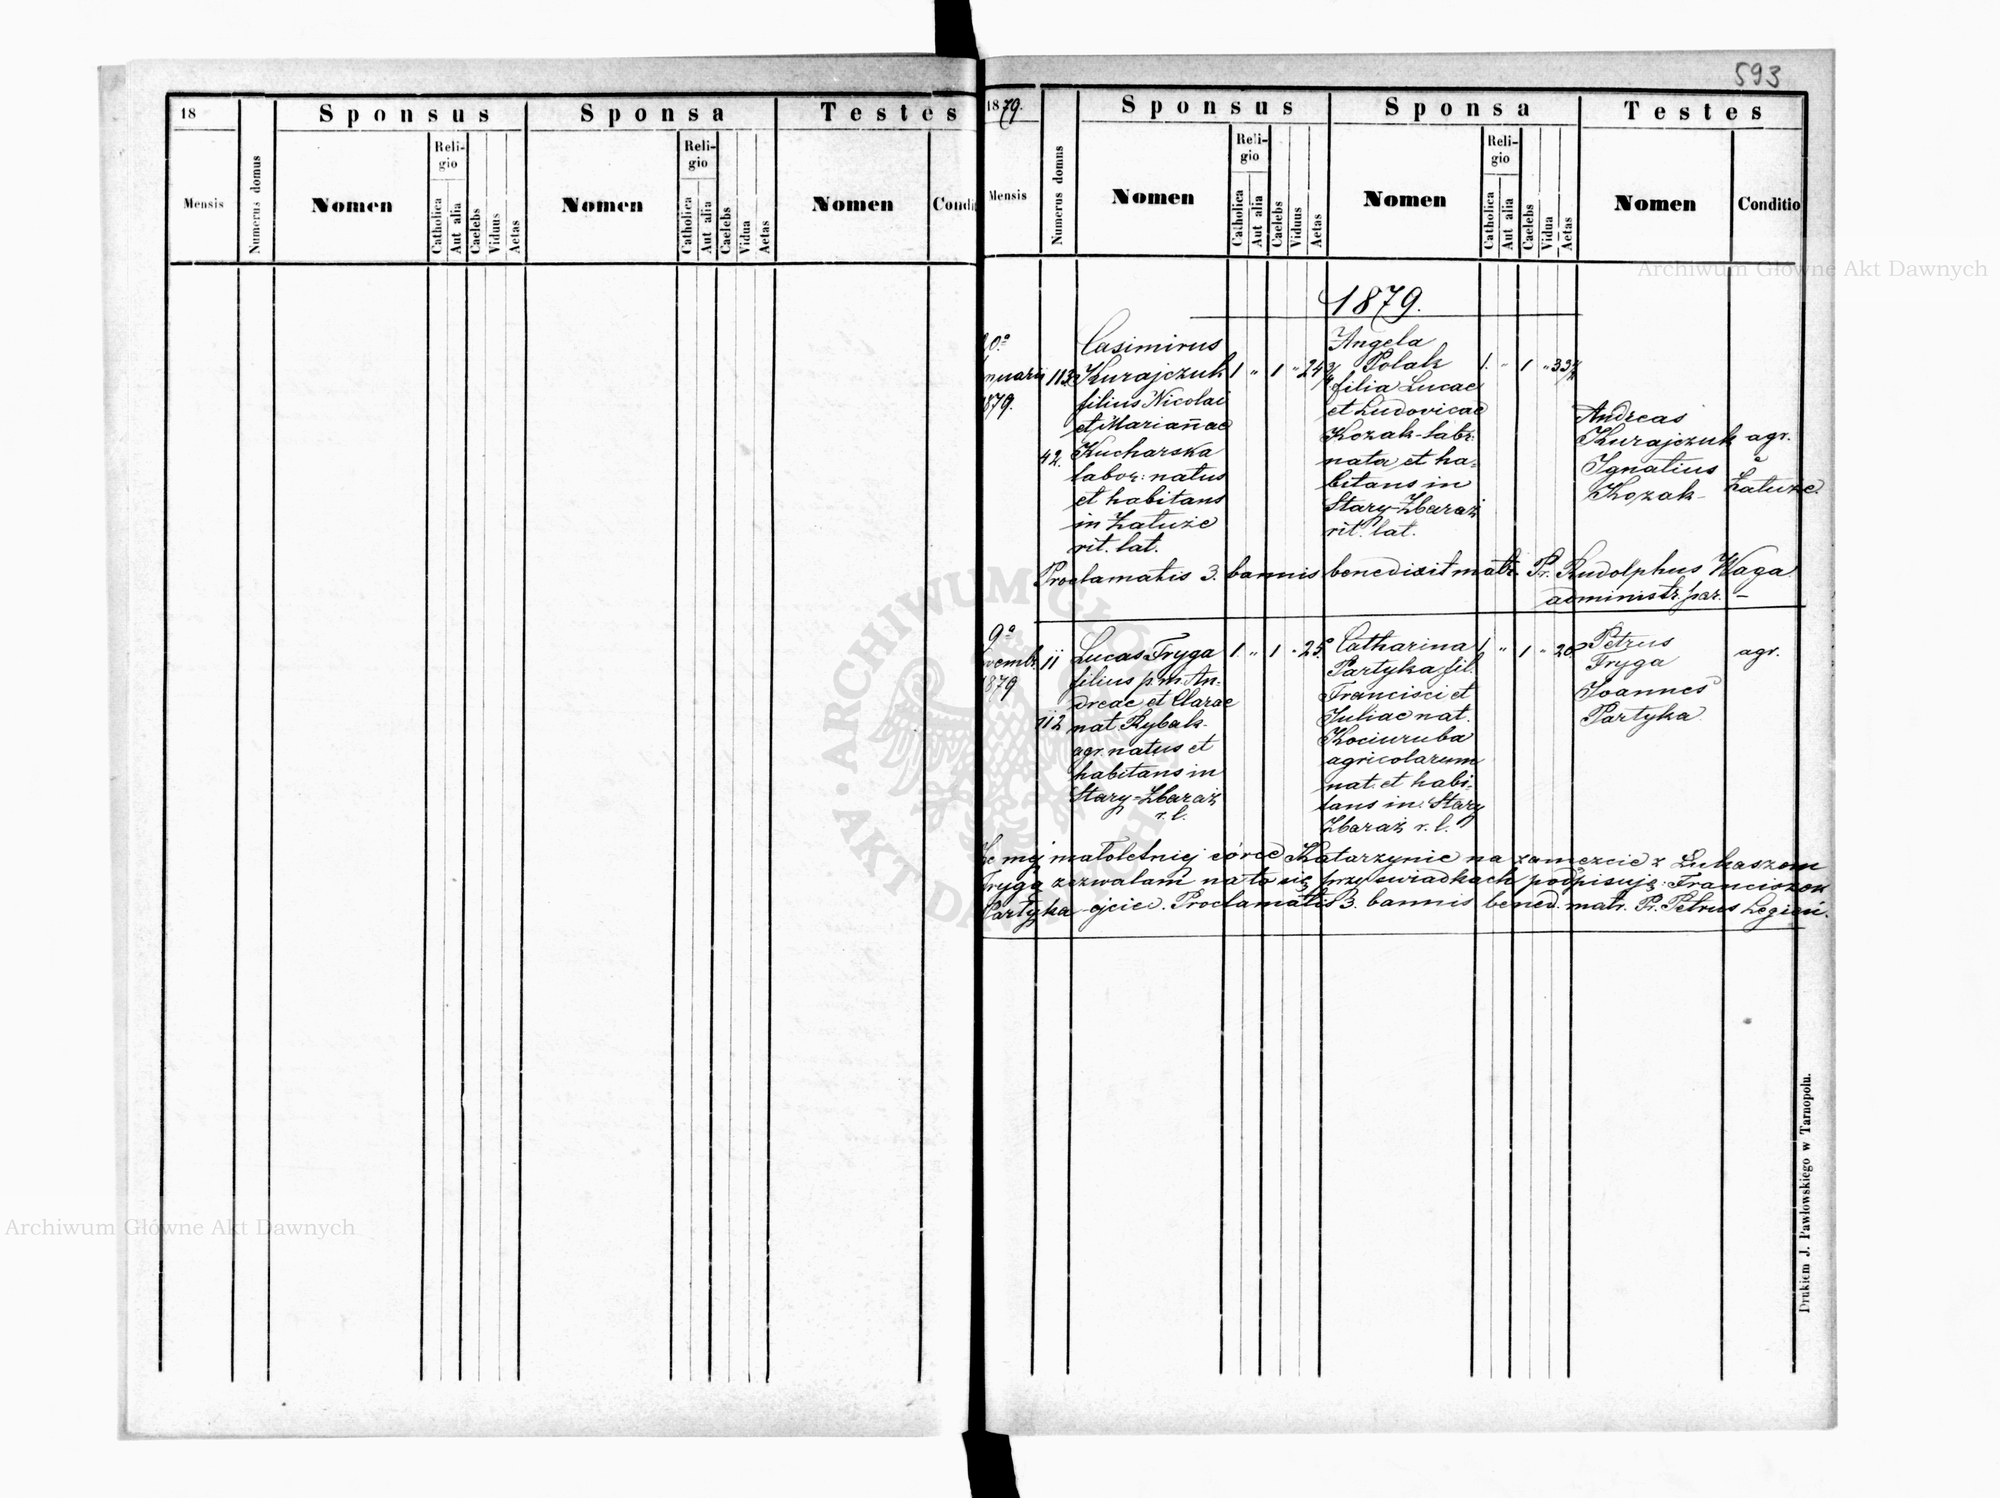 593
18
Sponsus
Sponsa
Testes
Mensis
Numerus domus
Nomen
Religio
Catholica
Aut alia
Caelebs
Viduus
Aetas
Nomen
Religio
Catholica
Aut alia
Caelebs
Vidua
Aetas
Nomen
Condi
1879.
Sponsus
Sponsa
Testes
Mensis
Numerus domus
Nomen
Religio
Catholica
Aut alia
Caelebs
Viduus
Aetas
Nomen
Religio
Catholica
Aut alia
Caelebs
Vidua
Aetas
Nomen
Conditio
Archiwum Główne Akt Dawnych
1879.
nuarii
879.
113
42.
Casimirus
Kurajczuk
filius Nicolai
et Mariannae
Kucharska
labor: natus
et habitans
in Załuże
rit. lat.
1 " 1 " 24
Angela
Polak
filia Lucae
et Ludovicae
Kozak labr.
nata et ha=
bitans in
Stary-Zbaraż
rit. lat.
1. " 1 " 33
Andreas
Kurajczuk agr.
Ignatius è
Kozak Załuże.
Proclamatis 3. bannis benedixit matr. Pr. Rudolphus Waga
administr. par. –
9ª
vembr.
879
11
112
Lucas Fryga
filius p.m. An-
dreae et Clarae
nat. Rybak
agr. natus et
habitans in
Stary=Zbaraż
r. l.
1. " 1 " 25.
Catharina
Partyka fil.
Francisci et
Juliae nat.
Kociuruba
agricolarum
nat. et habi-
tans in Stary
Zbaraż r. l.
1. " 1 " 20
Petrus
Fryga agr.
Joannes
Partyka
Że mej małoletniej córce Katarzynie na zamęzcie z Łukaszem
Frygą zezwalam na to się przy świadkach podpisuję: Franciszek
Partyka ojciec. Proclamatis 3. bannis bened. matr. Pr. Petrus
ARCHIWUM GŁÓWNE AKT DAWNYCH
Archiwum Główne Akt Dawnych
Drukiem J. Pawłowskiego w Tarnopolu.